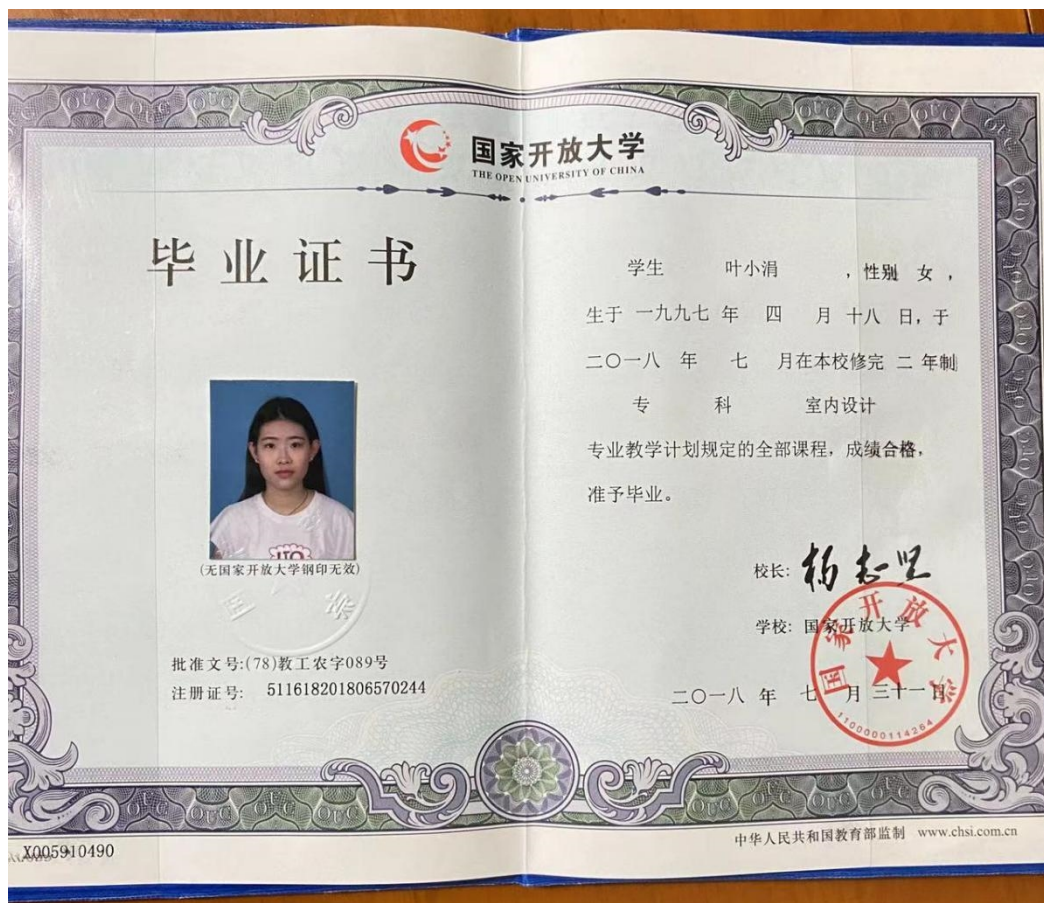 国家开放大学
THE OPEN UNIVERSITY OF CHINA
毕业证书
(无国家开放大学钢印无效)
批准文号:(78)教工农字089号
注册证号: 511618201806570244
X005910490
学生 叶小涓 ，性别 女，
生于 一九九七 年 四 月 十八 日，于
二〇一八 年 七 月在本校修完 二 年制
专 科 室内设计
专业教学计划规定的全部课程，成绩合格，
准予毕业。
校长: 杨志坚
学校: 国家开放大学
二〇一八 年 七 月 三十一 日
国家开放大学
1100000114264
中华人民共和国教育部监制 www.chsi.com.cn